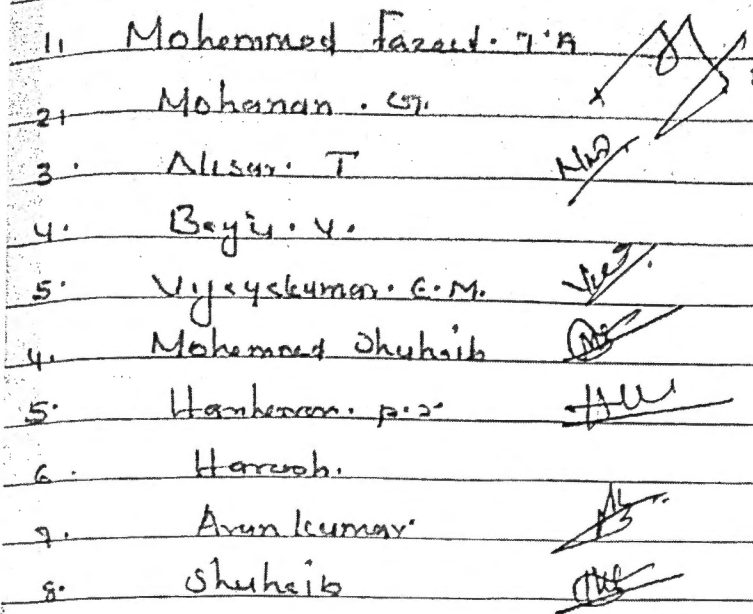 1, Mohemmed Fazeel. T.A
2, Mohanan . G.
3. Nisar. T
4. Bayiu. V.
5. Vijayakumar. C.M.
4. Mohemmed Shuhaib
5. Hariharan. P.S
6. Haroosh.
7. Arun kumar.
8. Shuhaib